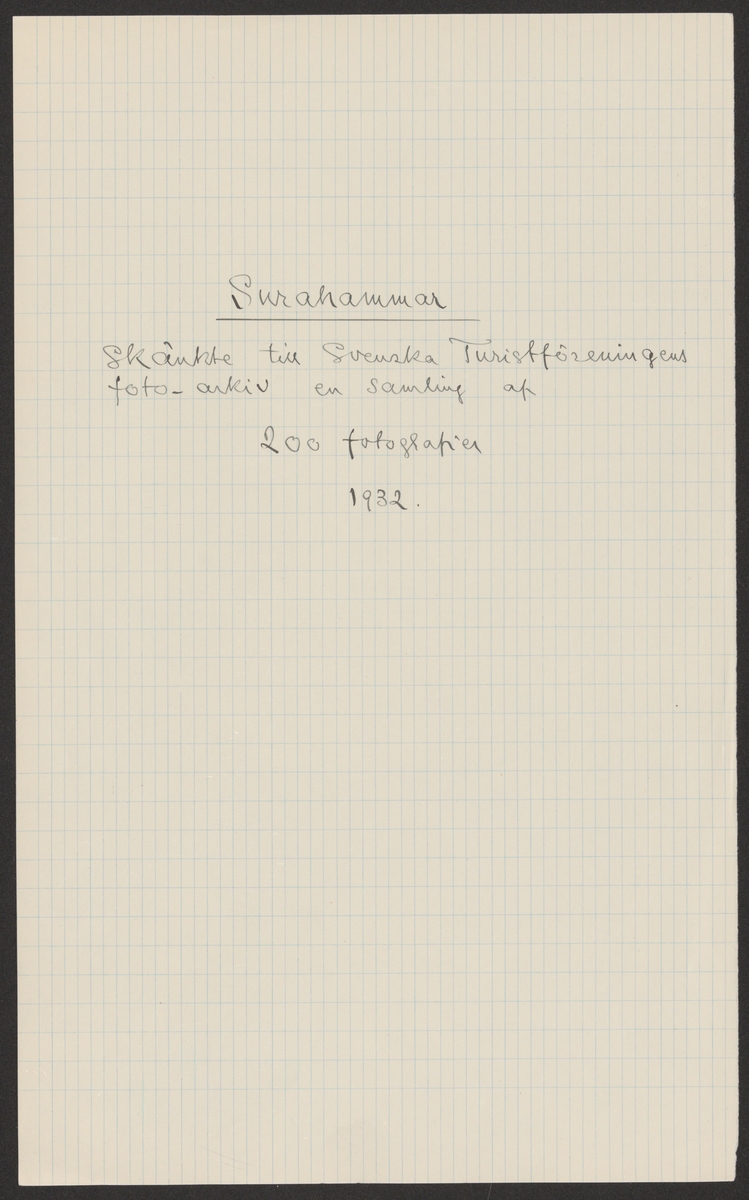 Surahammar
Skänkte till Svenska Turistföreningens
foto-arkiv en samling af
200 fotografier
1932.